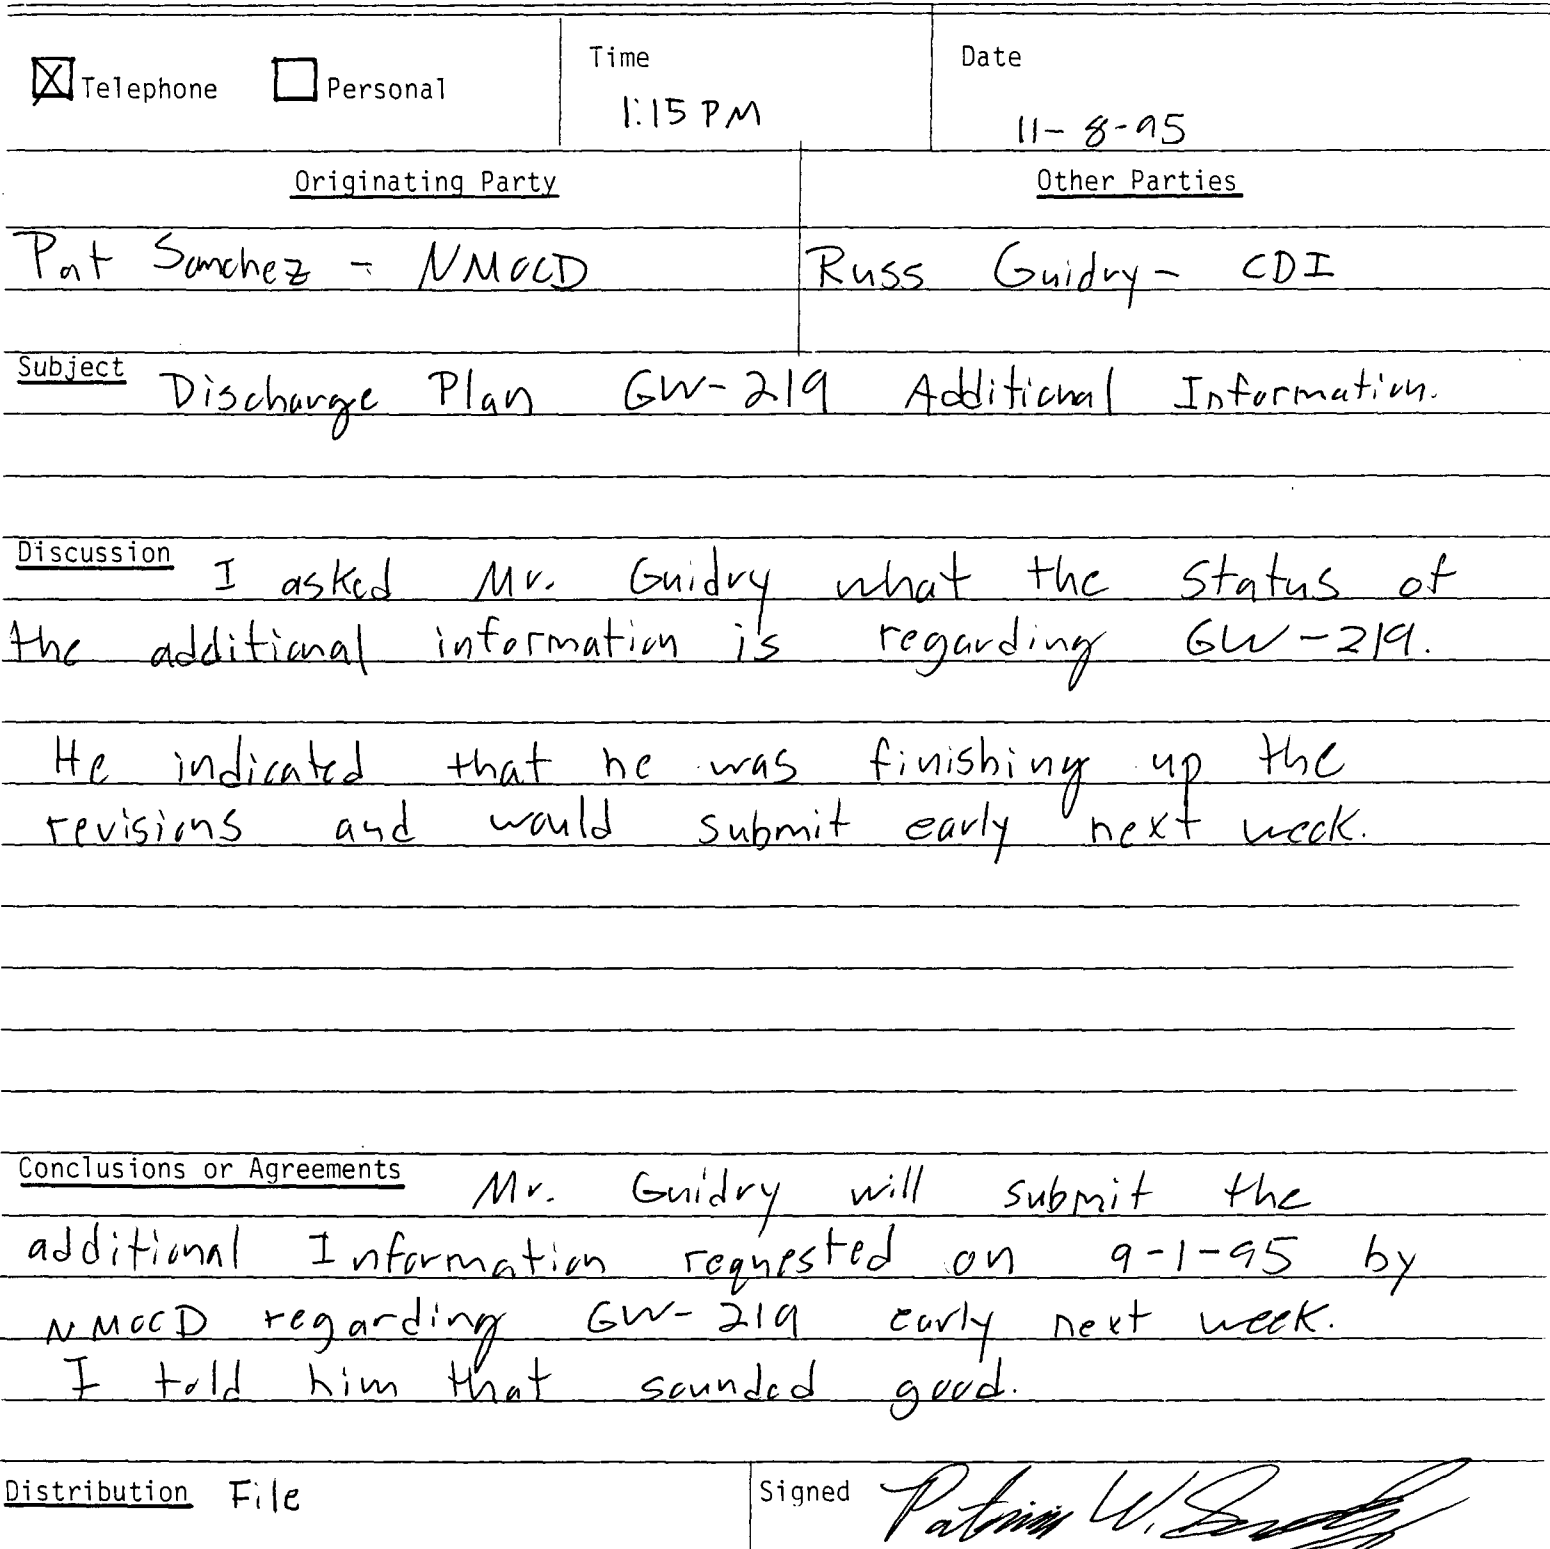 Telephone Personal Time Date
1:15 PM 11-8-95
Originating Party Other Parties
Pat Sanchez - NMOCD Russ Guidry - CDI
Subject Discharge Plan GW-219 Additional Information.
Discussion I asked Mr. Guidry what the status of
the additional information is regarding GW-219.
He indicated that he was finishing up the
revisions and would submit early next week.
Conclusions or Agreements Mr. Guidry will submit the
additional Information requested on 9-1-95 by
NMOCD regarding GW-219 early next week.
I told him that sounded good.
Distribution File Signed Patricio W. Sanchez